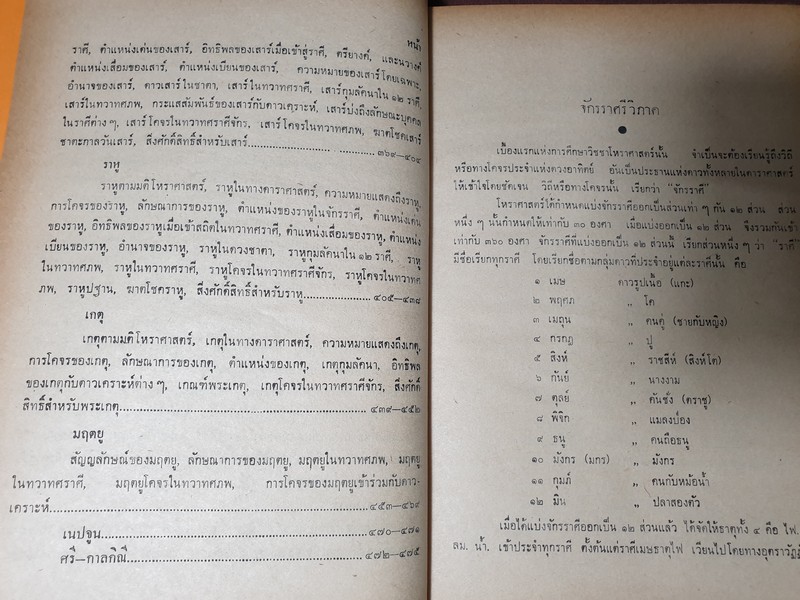 หน้า
ราศี, ตำแหน่งเด่นของเสาร์, อิทธิพลของเสาร์เมื่อเข้าสู่ราศี, ตรียางค์, และนวางศ์
ตำแหน่งเสื่อมของเสาร์, ตำแหน่งเบียนของเสาร์, ความหมายของเสาร์โดยเฉพาะ,
อำนาจของเสาร์, ดาวเสาร์ในชาตา, เสาร์ในทวาทศราศี, เสาร์กุมลัคนาใน ๑๒ ราศี,
เสาร์ในทวาทศภพ, กระแสสัมพันธ์ของเสาร์กับดาวเคราะห์, เสาร์บ่งถึงลักษณะบุคคล
ในราศีต่าง ๆ, เสาร์โคจรในทวาทศราศีจักร, เสาร์โคจรในทวาทศภพ, ฆาตโชคเสาร์
ชาตะกาลวันเสาร์, สิ่งศักดิ์สิทธิ์สำหรับเสาร์..........................๓๖๙—๔๐๔
ราหู
ราหูตามมติโหราศาสตร์, ราหูในทางดาราศาสตร์, ความหมายแสดงถึงราหู,
การโคจรของราหู, ลักษณาการของราหู, ตำแหน่งของราหูในจักรราศี, ตำแหน่งเด่น
ของราหู, อิทธิพลของราหูเมื่อเข้าสถิตในทวาทศราศี, ตำแหน่งเสื่อมของราหู, ตำแหน่ง
เบียนของราหู, อำนาจของราหู, ราหูในดวงชาตา, ราหูกุมลัคนาใน ๑๒ ราศี, ราหู
ในทวาทศภพ, ราหูในทวาทศราศี, ราหูโคจรในทวาทศราศีจักร, ราหูโคจรในทวาทศ
ภพ, ราหูปฐาน, ฆาตโชคราหู, สิ่งศักดิ์สิทธิ์สำหรับราหู..........................๔๐๕—๔๓๘
เกตุ
เกตุตามมติโหราศาสตร์, เกตุในทางดาราศาสตร์, ความหมายแสดงถึงเกตุ,
การโคจรของเกตุ, ลักษณาการของเกตุ, ตำแหน่งของเกตุ, เกตุกุมลัคนา, อิทธิพล
ของเกตุกับดาวเคราะห์ต่าง ๆ, เกณฑ์พระเกตุ, เกตุโคจรในทวาทศราศีจักร, สิ่งศักดิ์
สิทธิ์สำหรับพระเกตุ..........................๔๓๙—๔๕๒
มฤตยู
สัญญลักษณ์ของมฤตยู, ลักษณาการของมฤตยู, มฤตยูในทวาทศภพ, มฤตยู
ในทวาทศราศี, มฤตยูโคจรในทวาทศภพ, การโคจรของมฤตยูเข้าร่วมกับดาว-
เคราะห์..........................๔๕๓—๔๖๙
เนปจูน..........................๔๗๐—๔๗๑
ศรี—กาลกิณี..........................๔๗๒—๔๗๕
จักรราศีวิภาค
เบื้องแรกแห่งการศึกษาวิชชาโหราศาสตร์นั้น จำเป็นจะต้องเรียนรู้ถึงวิถี
หรือทางโคจรประจำแห่งดวงอาทิตย์ อันเป็นประธานแห่งดาวทั้งหลายในดาราศาสตร์
ให้เข้าใจโดยชัดเจน วิถีหรือทางโคจรนั้น เรียกว่า “จักรราศี”
โหราศาสตร์ได้กำหนดแบ่งจักรราศีออกเป็นส่วนเท่า ๆ กัน ๑๒ ส่วน ส่วน
หนึ่ง ๆ นั้นกำหนดให้เท่ากับ ๓๐ องศา เมื่อแบ่งออกเป็น ๑๒ ส่วนนี้ จึงรวมกันเข้า
เท่ากับ ๓๖๐ องศา จักรราศีที่แบ่งออกเป็น ๑๒ ส่วนนี้ เรียกส่วนหนึ่ง ๆ ว่า “ราศี”
มีชื่อเรียกทุกราศี โดยเรียกชื่อตามกลุ่มดาวที่ประจำอยู่แต่ละราศีนั้น คือ
๑ เมษ ดาวรูปเนื้อ (แกะ)
๒ พฤศภ „ โค
๓ เมถุน „ คนคู่ (ชายกับหญิง)
๔ กรกฎ „ ปู
๕ สิงห์ „ ราชสีห์ (สิงห์โต)
๖ กันย์ „ นางงาม
๗ ตุลย์ „ คันชั่ง (ตราชู)
๘ พิจิก „ แมลงป่อง
๙ ธนู „ คนถือธนู
๑๐ มังกร (มกร) „ มังกร
๑๑ กุมภ์ „ คนกับหม้อน้ำ
๑๒ มีน „ ปลาสองตัว
เมื่อได้แบ่งจักรราศีออกเป็น ๑๒ ส่วนแล้ว ได้จัดให้ธาตุทั้ง ๔ คือ ไฟ.
ลม. น้ำ. เข้าประจำทุกราศี ตั้งต้นแต่ราศีเมษธาตุไฟ เวียนไปโดยทางอุตราวัฏฏ์